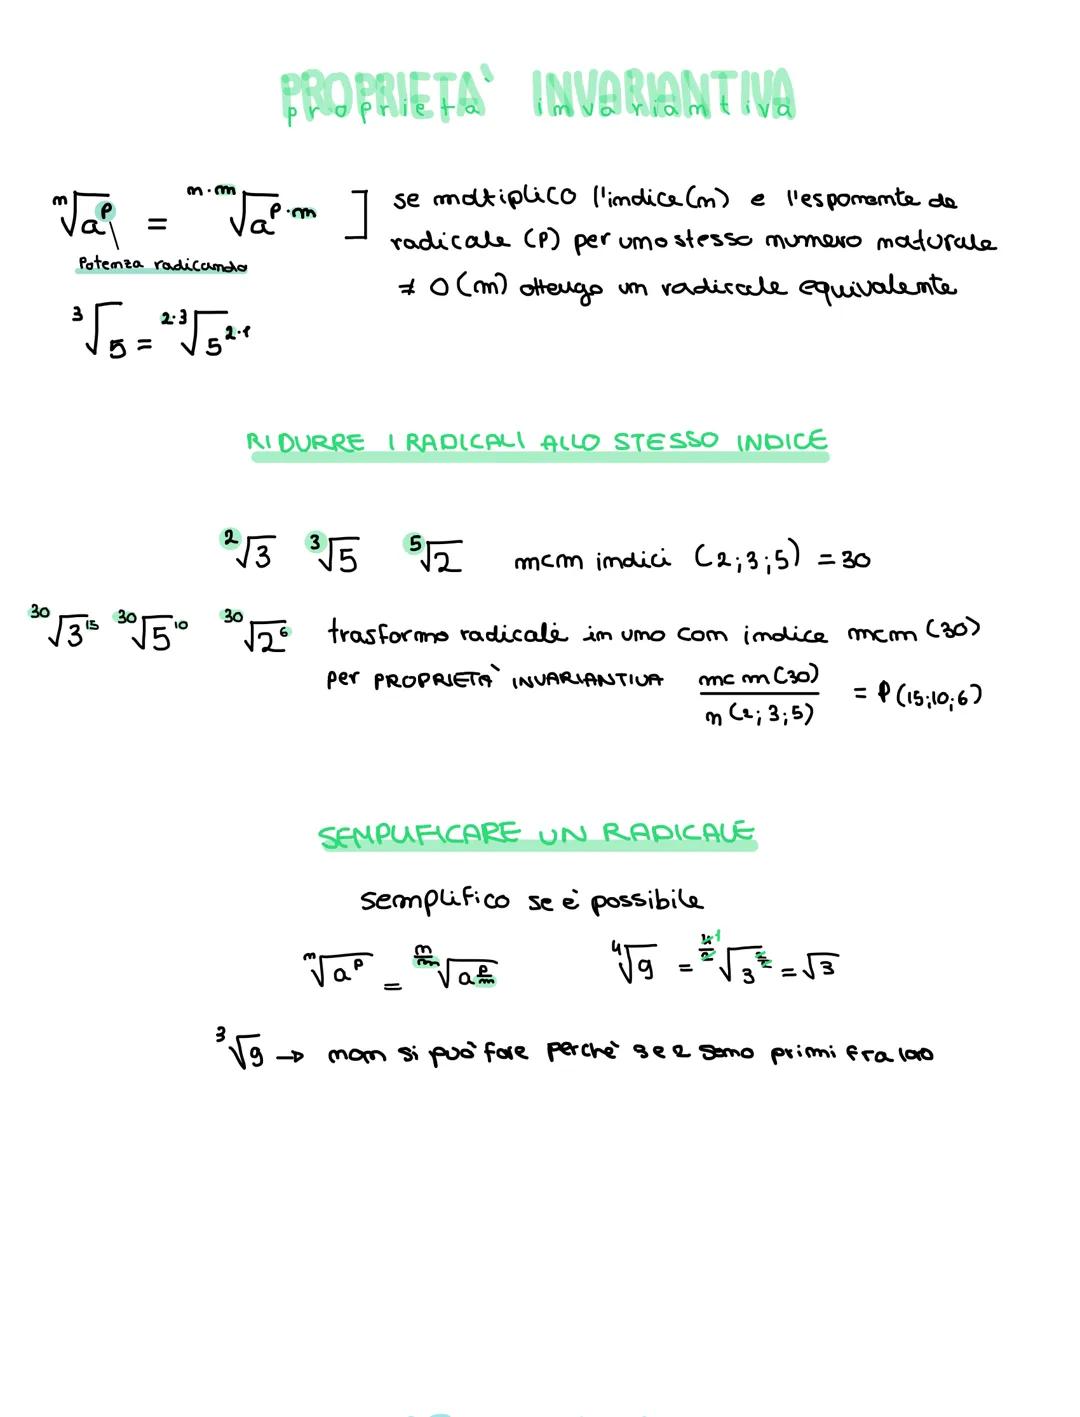 PROPRIETA' INVARIANTIVA
proprietà invariantiva
ⁿ√aᵖ = ⁿ·ᵐ√aᵖ·ᵐ ] se moltiplico l'indice (n) e l'esponente de
Potenza radicando
radicale (P) per uno stesso numero naturale
≠ 0 (m) ottengo un radicale equivalente
³√5 = ²·³√5²·¹
RIDURRE I RADICALI ALLO STESSO INDICE
²√3 ³√5 ⁵√2 mcm indici (2;3;5) = 30
³⁰√3¹⁵ ³⁰√5¹⁰ ³⁰√2⁶ trasformo radicale in uno con indice mcm (30)
per PROPRIETA' INVARIANTIVA mcm (30) / n (2; 3; 5) = P (15;10;6)
SEMPLIFICARE UN RADICALE
semplifico se è possibile
ⁿ√aᵖ = n/m√a p/m ⁴√9 = 4/2√3 2/2 = √3
³√9 → non si può fare perchè 3 e 2 sono primi fra loro